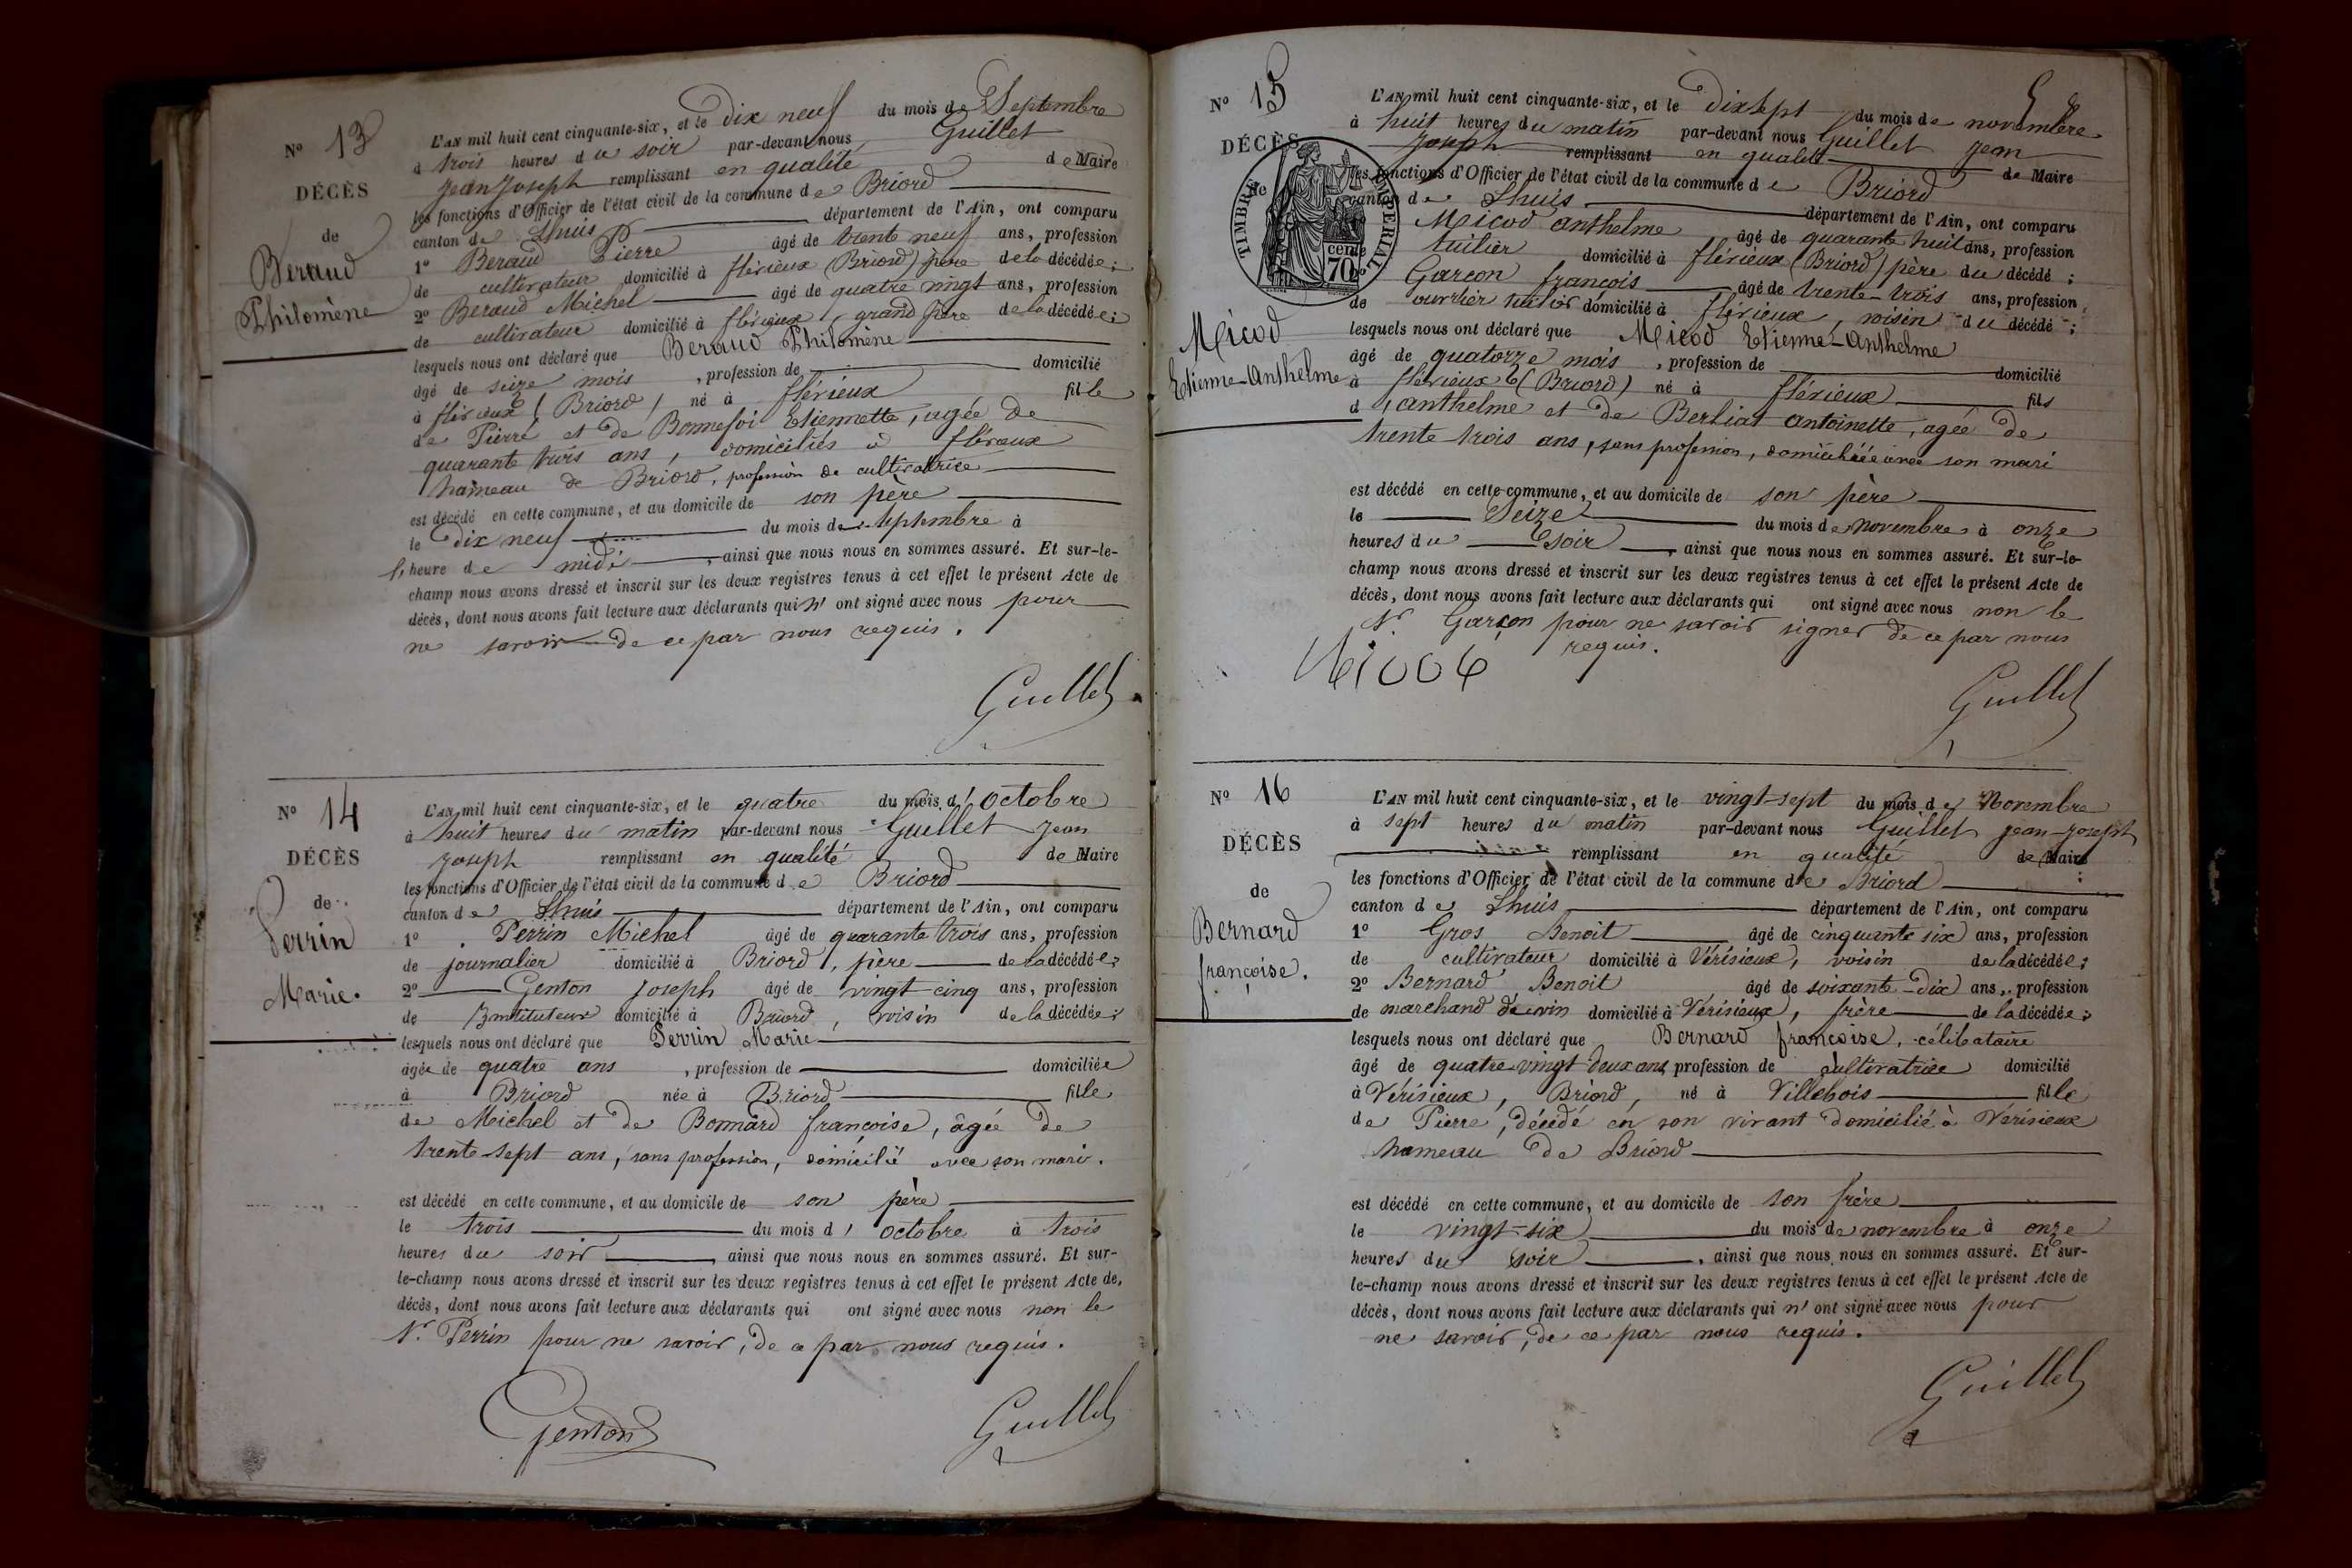 N° 13
DÉCÈS
de
Beraud
Philomène
L'AN mil huit cent cinquante-six, et le Dix neuf du mois de Septembre
à trois heures du soir par-devant nous Guillet
Jean Joseph remplissant en qualité de Maire
les fonctions d'Officier de l'état civil de la commune de Briord
canton de Lhuis département de l'Ain, ont comparu
1° Beraud Pierre âgé de trente neuf ans, profession
de cultivateur domicilié à flérieux (Briord) père de la décédée;
2° Beraud Michel âgé de quatre vingt ans, profession
de cultivateur domicilié à flérieux, grand père de la décédée;
lesquels nous ont déclaré que Beraud Philomène
âgé de seize mois, profession de domicilié
à flérieux (Briord) né à flérieux fille
de Pierre et de Bonnefoi Etiennette, agée de
quarante trois ans, domiciliés à flérieux
hameau de Briord, profession de cultivatrice
est décédé en cette commune, et au domicile de son père
le dix neuf du mois de Septembre à
l, heure de midi, ainsi que nous nous en sommes assuré. Et sur-le-
champ nous avons dressé et inscrit sur les deux registres tenus à cet effet le présent Acte de
décès, dont nous avons fait lecture aux déclarants qui n' ont signé avec nous pour
ne savoir de ce par nous requis.
Guillet
N° 14
DÉCÈS
de
Perrin
Marie.
L'AN mil huit cent cinquante-six, et le quatre du mois d'octobre
à huit heures du matin par-devant nous Guillet Jean
Joseph remplissant en qualité de Maire
les fonctions d'Officier de l'état civil de la commune de Briord
canton de Lhuis département de l'Ain, ont comparu
1° Perrin Michel âgé de quarante trois ans, profession
de journalier domicilié à Briord, père de la décédée;
2° Genton Joseph âgé de vingt-cinq ans, profession
de Instituteur domicilié à Briord, voisin de la décédée;
lesquels nous ont déclaré que Perrin Marie
âgée de quatre ans, profession de domiciliée
à Briord née à Briord fille
de Michel et de Bonnard françoise, âgée de
trente-sept ans, sans profession, domicilié avec son mari.
est décédé en cette commune, et au domicile de son père
le trois du mois d' octobre à trois
heures du soir, ainsi que nous nous en sommes assuré. Et sur-
le-champ nous avons dressé et inscrit sur les deux registres tenus à cet effet le présent Acte de
décès, dont nous avons fait lecture aux déclarants qui ont signé avec nous non le
Sr. Perrin pour ne savoir, de ce par nous requis.
Genton Guillet
N° 15
DÉCÈS
de
TIMBRE IMPERIAL
70 cent.
Micod
Etienne-Anthelme
L'AN mil huit cent cinquante-six, et le Dix sept du mois de novembre
à huit heures du matin par-devant nous Guillet Jean
Joseph remplissant en qualité de Maire
les fonctions d'Officier de l'état civil de la commune de Briord
canton de Lhuis département de l'Ain, ont comparu
Micod anthelme âgé de quarante huit ans, profession
tuilier domicilié à flérieux (Briord) père du décédé;
2° Garçon françois âgé de trente-trois ans, profession
de ouvrier tuilier domicilié à flérieux, voisin du décédé;
lesquels nous ont déclaré que Micod Etienne-Anthelme
âgé de quatorze mois, profession de domicilié
à flérieux (Briord) né à flérieux fils
d'anthelme et de Berliat antoinette, agée de
trente trois ans, sans profession, domiciliée avec son mari
est décédé en cette commune, et au domicile de son père
le Seize du mois de novembre à onze
heures du soir, ainsi que nous nous en sommes assuré. Et sur-le-
champ nous avons dressé et inscrit sur les deux registres tenus à cet effet le présent Acte de
décès, dont nous avons fait lecture aux déclarants qui ont signé avec nous non le
Sr. Garçon pour ne savoir signer de ce par nous
requis.
Micod
Guillet
N° 16
DÉCÈS
de
Bernard
françoise.
L'AN mil huit cent cinquante-six, et le vingt-sept du mois de Novembre
à sept heures du matin par-devant nous Guillet jean-Joseph
remplissant en qualité de Maire
les fonctions d'Officier de l'état civil de la commune de Briord
canton de Lhuis département de l'Ain, ont comparu
1° Gros Benoit âgé de cinquante six ans, profession
de cultivateur domicilié à Vérisieux, voisin de la décédée;
2° Bernard Benoit âgé de soixante-dix ans, profession
de marchand de vin domicilié à Vérisieux, frère de la décédée;
lesquels nous ont déclaré que Bernard françoise, célibataire
âgé de quatre vingt deux ans profession de cultivatrice domicilié
à Vérisieux, Briord, né à Villebois fille
de Pierre, décédé en son vivant domicilié à Vérisieux
hameau de Briord
est décédé en cette commune, et au domicile de son frère
le vingt-six du mois de novembre à onze
heures du soir, ainsi que nous nous en sommes assuré. Et sur-
le-champ nous avons dressé et inscrit sur les deux registres tenus à cet effet le présent Acte de
décès, dont nous avons fait lecture aux déclarants qui n' ont signé avec nous pour
ne savoir, de ce par nous requis.
Guillet